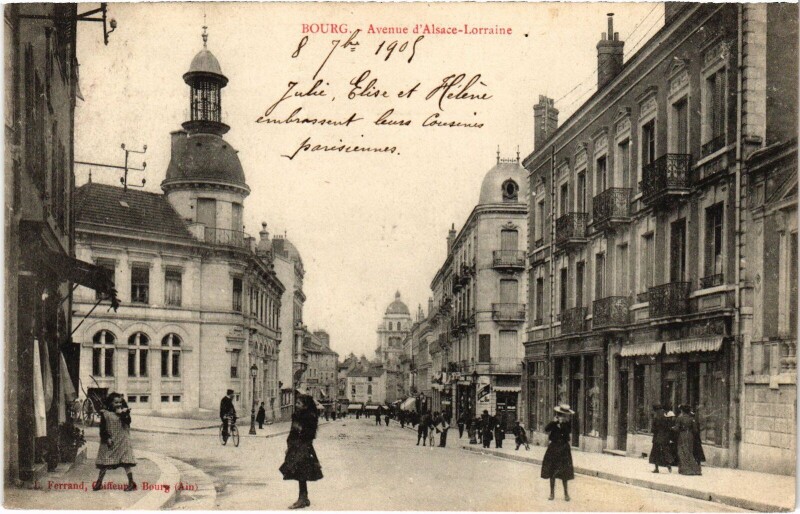 BOURG. - Avenue d'Alsace-Lorraine
8 7bre 1905
Julie, Elise et Hélène
embrassent leurs Cousines
parisiennes.
Ferrand, Coiffeur à Bourg (Ain)